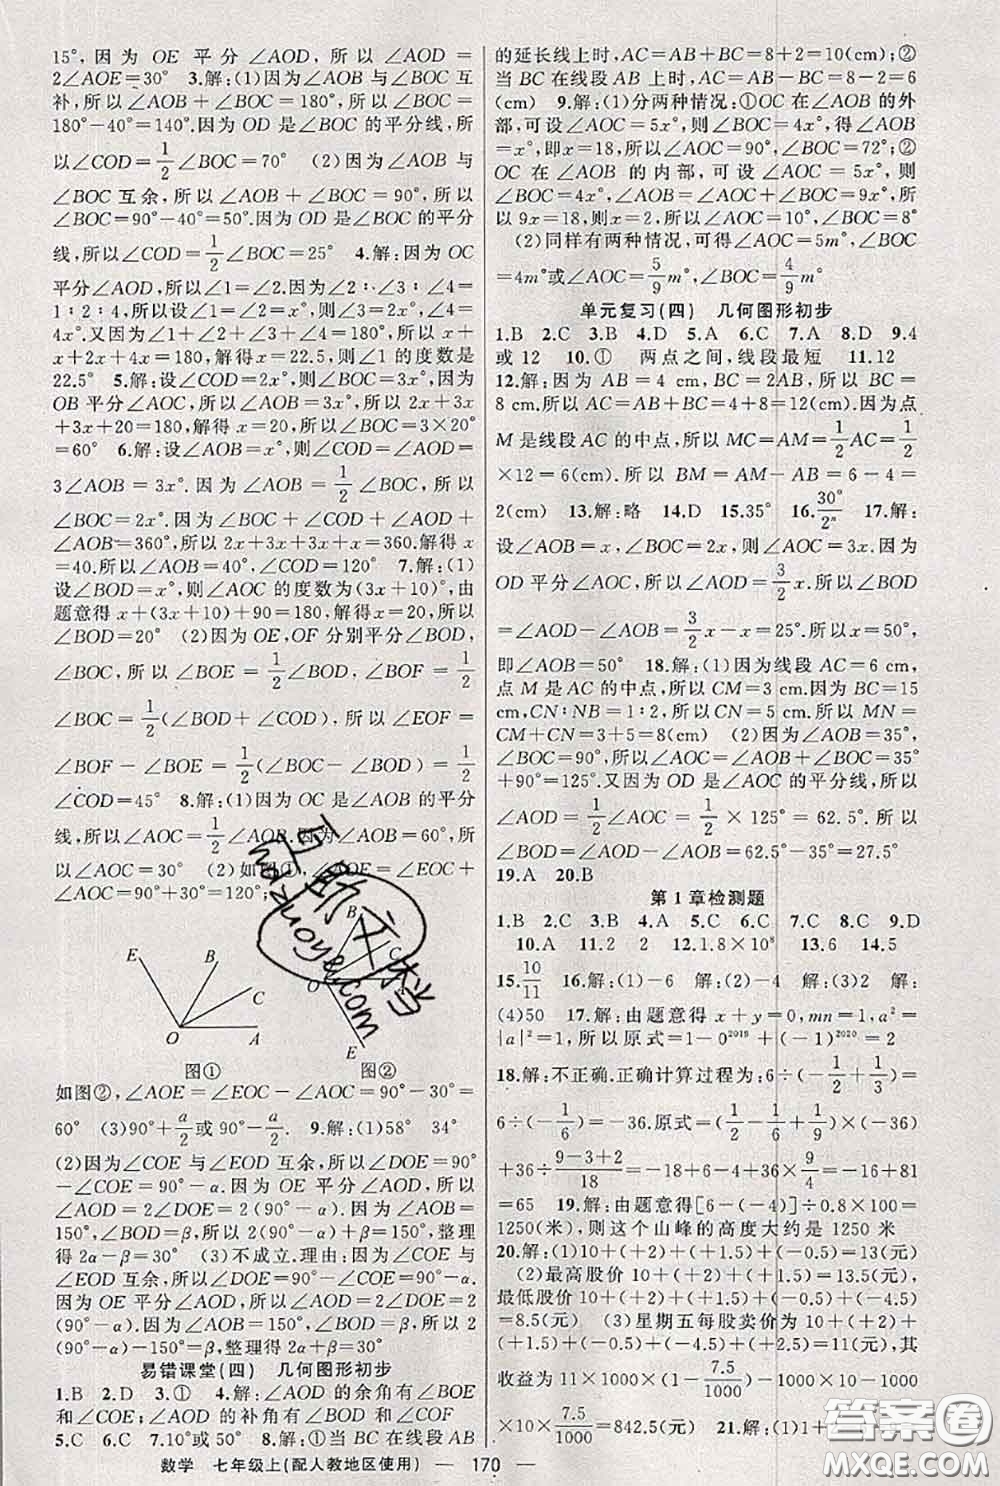 15°,因为 OE 平分∠AOD,所以∠AOD=
2∠AOE=30° 3.解:(1)因为∠AOB与∠BOC互
补,所以∠AOB+∠BOC=180°,所以∠BOC=
180°-40°=140°.因为 OD 是∠BOC 的平分线,所
以∠COD=1/2∠BOC=70° (2)因为∠AOB 与
∠BOC 互余,所以∠AOB+∠BOC=90°,所以
∠BOC=90°-40°=50°.因为OD是∠BOC的平分
线,所以∠COD=1/2∠BOC=25° 4.解:因为OC
平分∠AOD,所以∠1=∠2.因为∠2∶∠3∶∠4=
1∶2∶4,所以设∠1=∠2=x°,则∠3=2x°,∠4=
4x°.又因为∠1+∠2+∠3+∠4=180°,所以x+
x+2x+4x=180,解得x=22.5,所以∠1的度数是
22.5° 5.解:设∠COD=2x°,则∠BOC=3x°,因为
OB平分∠AOC,所以∠AOB=3x°,所以2x+3x
+3x+20=180,解得 x=20,所以∠BOC=3×20°
=60° 6.解:设∠AOB=x°.因为∠COD=∠AOD=
3∠AOB=3x°.因为∠AOB=1/2∠BOC,所以
∠BOC=2x°.因为∠BOC+∠COD+∠AOD+
∠AOB=360°,所以2x+3x+3x+x=360.解得x=
40.所以∠AOB=40°,∠COD=120° 7.解:(1)
设∠BOD=x°,则∠AOC的度数为(3x+10)°,由
题意得x+(3x+10)+90=180,解得x=20,所以
∠BOD=20° (2)因为OE,OF分别平分∠BOD,
∠BOC,所以∠BOE=1/2∠BOD,∠BOF=1/2
∠BOC=1/2(∠BOD+∠COD),所以∠EOF=
∠BOF-∠BOE=1/2(∠BOC-∠BOD)=1/2
∠COD=45° 8.解:(1)因为OC是∠AOB的平分
线,所以∠AOC=1/2∠AOB.因为∠AOB=60°,所
以∠AOC=30° (2)如图①,∠AOE=∠EOC+
∠AOC=90°+30°=120°;
E B C O A
B C O E
图① 图②
如图②,∠AOE=∠EOC-∠AOC=90°-30°=
60° (3)90°+a/2或90°-a/2. 9.解:(1)58° 34°
(2)因为∠COE与∠EOD互余,所以∠DOE=90°
-∠COE=90°-α.因为OE平分∠AOD,所以
∠AOD=2∠DOE=2(90°-α).因为∠AOB=
150°,∠BOD=β,所以2(90°-α)+β=150°,整理
得2α-β=30° (3)不成立.理由:因为∠COE与
∠EOD互余,所以∠DOE=90°-∠COE=90°-α.
因为OE平分∠AOD,所以∠AOD=2∠DOE=2
(90°-α).因为∠AOB=150°,∠BOD=β,所以2
(90°-α)-β=150°,整理得2α+β=30°
易错课堂(四) 几何图形初步
1.B 2.D 3.① 4.解:∠AOD的余角有∠BOE
和∠COE;∠AOD的补角有∠BOD和∠COF
5.C 6.C 7.10°或50° 8.解:①当BC在线段AB
的延长线上时,AC=AB+BC=8+2=10(cm);②
当BC在线段AB上时,AC=AB-BC=8-2=6
(cm) 9.解:(1)分两种情况:①OC在∠AOB的外
部,可设∠AOC=5x°,则∠BOC=4x°,得∠AOB
=x°,即x=18,所以∠AOC=90°,∠BOC=72°;②
OC在∠AOB的内部,可设∠AOC=5x°,则
∠BOC=4x°,∠AOB=∠AOC+∠BOC=9x°,所
以9x=18,则x=2,所以∠AOC=10°,∠BOC=8°
(2)同样有两种情况,可得∠AOC=5m°,∠BOC
=4m°或∠AOC=5/9m°,∠BOC=4/9m°
单元复习(四) 几何图形初步
1.B 2.C 3.B 4.D 5.A 6.C 7.A 8.D 9.4
或12 10.① 两点之间,线段最短 11.12
12.解:因为 AB=4 cm,BC=2AB,所以 BC=
8 cm.所以AC=AB+BC=4+8=12(cm).因为点
M是线段AC的中点,所以MC=AM=1/2AC=1/2
×12=6(cm).所以BM=AM-AB=6-4=
2(cm) 13.解:略 14.D 15.35° 16.30°/2ⁿ 17.解:
设∠AOB=x,∠BOC=2x,则∠AOC=3x.因为
OD平分∠AOC,所以∠AOD=3/2x.所以∠BOD
=∠AOD-∠AOB=3/2x-x=25°.所以x=50°,
即∠AOB=50° 18.解:(1)因为线段AC=6 cm,
点M是AC的中点,所以CM=3 cm.因为BC=15
cm,CN∶NB=1∶2,所以CN=5 cm.所以MN=
CM+CN=3+5=8(cm) (2)因为∠AOB=35°,
∠BOC=90°,所以∠AOC=∠AOB+∠BOC=35°
+90°=125°.又因为OD是∠AOC的平分线,所以
∠AOD=1/2∠AOC=1/2×125°=62.5°.所以
∠BOD=∠AOD-∠AOB=62.5°-35°=27.5°
19.A 20.B
第1章检测题
1.B 2.C 3.B 4.A 5.C 6.C 7.B 8.C 9.D
10.A 11.2 2 12.1.8×10⁸ 13.6 14.5
15.10/11 16.解:(1)-6 解:(2)-4 解:(3)2 解:
(4)50 17.解:由题意得x+y=0,mn=1,a²=
|a|²=1,所以原式=1-0²⁰¹⁹+(-1)²⁰²⁰=2
18.解:不正确.正确计算过程为:6÷(-1/2+1/3)=
6÷(-1/6)=-36.原式=(1/2-1/6+1/9)×(-36)
+36÷(9-3+2)/18=-18+6-4+36×9/4=-16+81
=65 19.解:由题意得[6-(-4)]÷0.8×100=
1250(米),则这个山峰的高度大约是1250米
20.解:(1)10+(+2)+(+1.5)+(-0.5)=13(元)
(2)最高股价10+(+2)+(+1.5)=13.5(元),
最低股价10+(+2)+(+1.5)+(-0.5)+(-4.5)
=8.5(元) (3)星期五每股卖价为10+(+2)+
(+1.5)+(-0.5)+(-4.5)+(+2.5)=11(元),其
收益为11×1000×(1-7.5/1000)-1000×10-1000
×10×7.5/1000=842.5(元) 21.解:(1)1+
数学 七年级上(配人教地区使用) — 170 —
互助文档
hdzuoye.com
答案卷
MXQE.COM